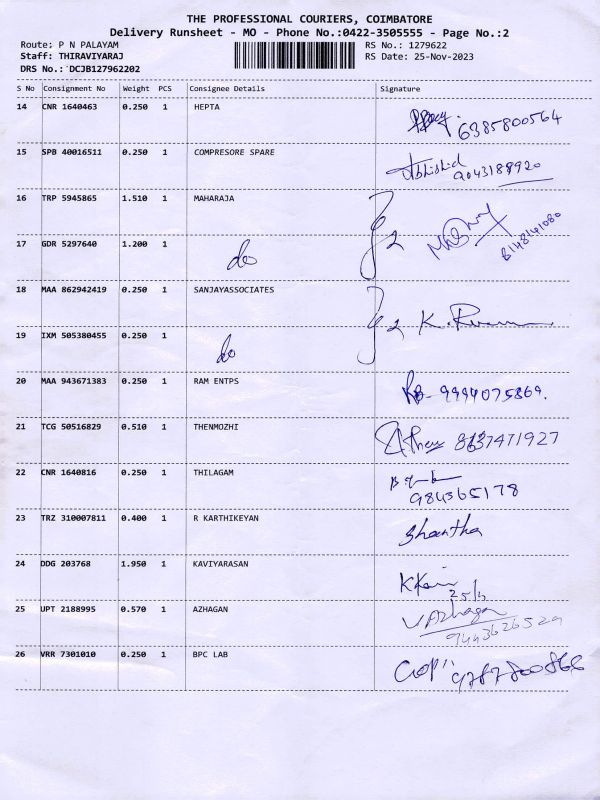 THE PROFESSIONAL COURIERS, COIMBATORE
Delivery Runsheet - MO - Phone No.:0422-3505555 - Page No.:2
Route: P N PALAYAM RS No.: 1279622
Staff: THIRAVIYARAJ RS Date: 25-Nov-2023
DRS No.: DCJB127962202
S No Consignment No Weight PCS Consignee Details Signature
14 CNR 1640463 0.250 1 HEPTA
6385800564
15 SPB 40016511 0.250 1 COMPRESORE SPARE Abhishid
9043188920
16 TRP 5945865 1.510 1 MAHARAJA
8148141080
17 GDR 5297640 1.200 1 do
18 MAA 862942419 0.250 1 SANJAYASSOCIATES
19 IXM 505380455 0.250 1 do
20 MAA 943671383 0.250 1 RAM ENTPS
9994075869.
21 TCG 50516829 0.510 1 THENMOZHI
22 CNR 1640816 0.250 1 THILAGAM
984365178
23 TRZ 310007811 0.400 1 R KARTHIKEYAN Shantha
24 DDG 203768 1.950 1 KAVIYARASAN
25/11
25 UPT 2188995 0.570 1 AZHAGAN V Azhagan
9443626529
26 VRR 7301010 0.250 1 BPC LAB Gopi